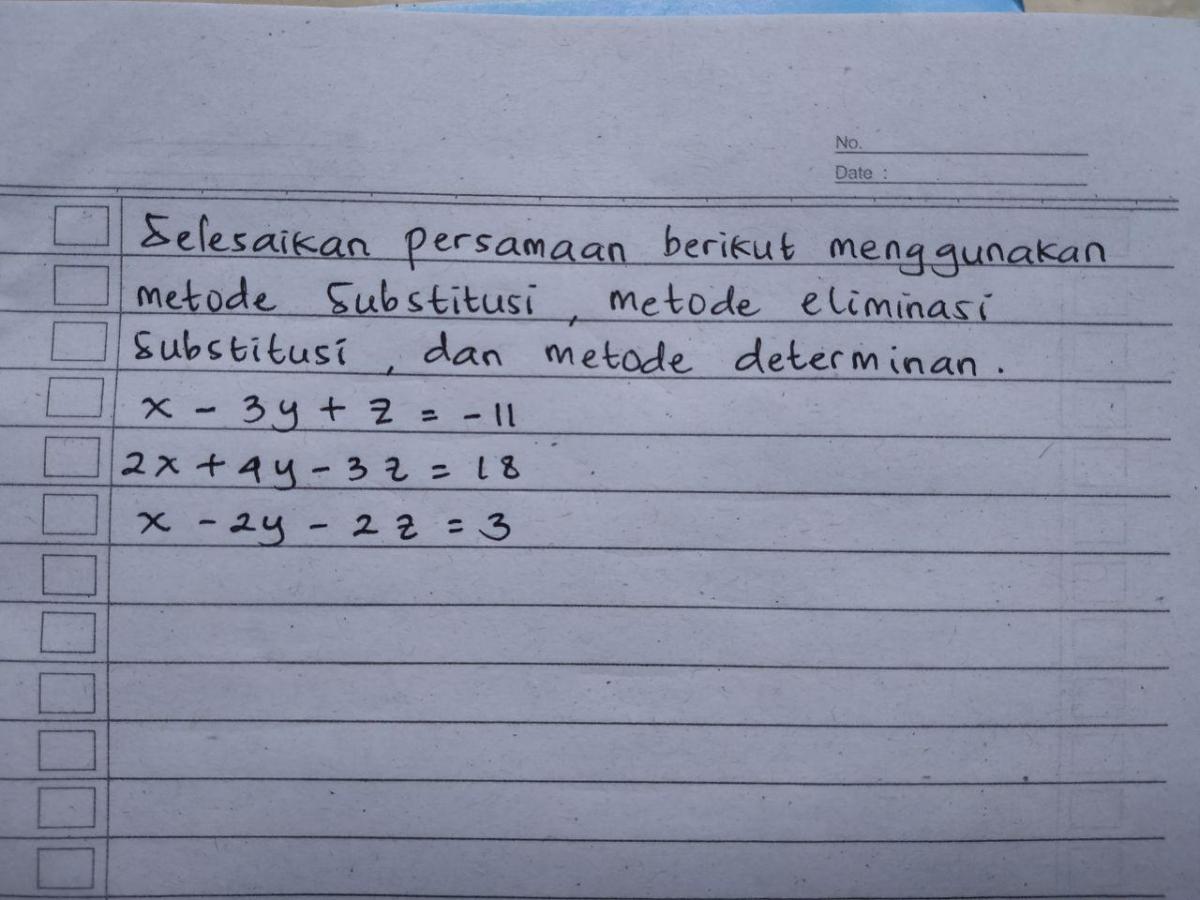 No.
Date :
Selesaikan persamaan berikut menggunakan
metode substitusi, metode eliminasi
substitusi, dan metode determinan.
x - 3y + z = -11
2x + 4y - 3z = 18
x - 2y - 2z = 3